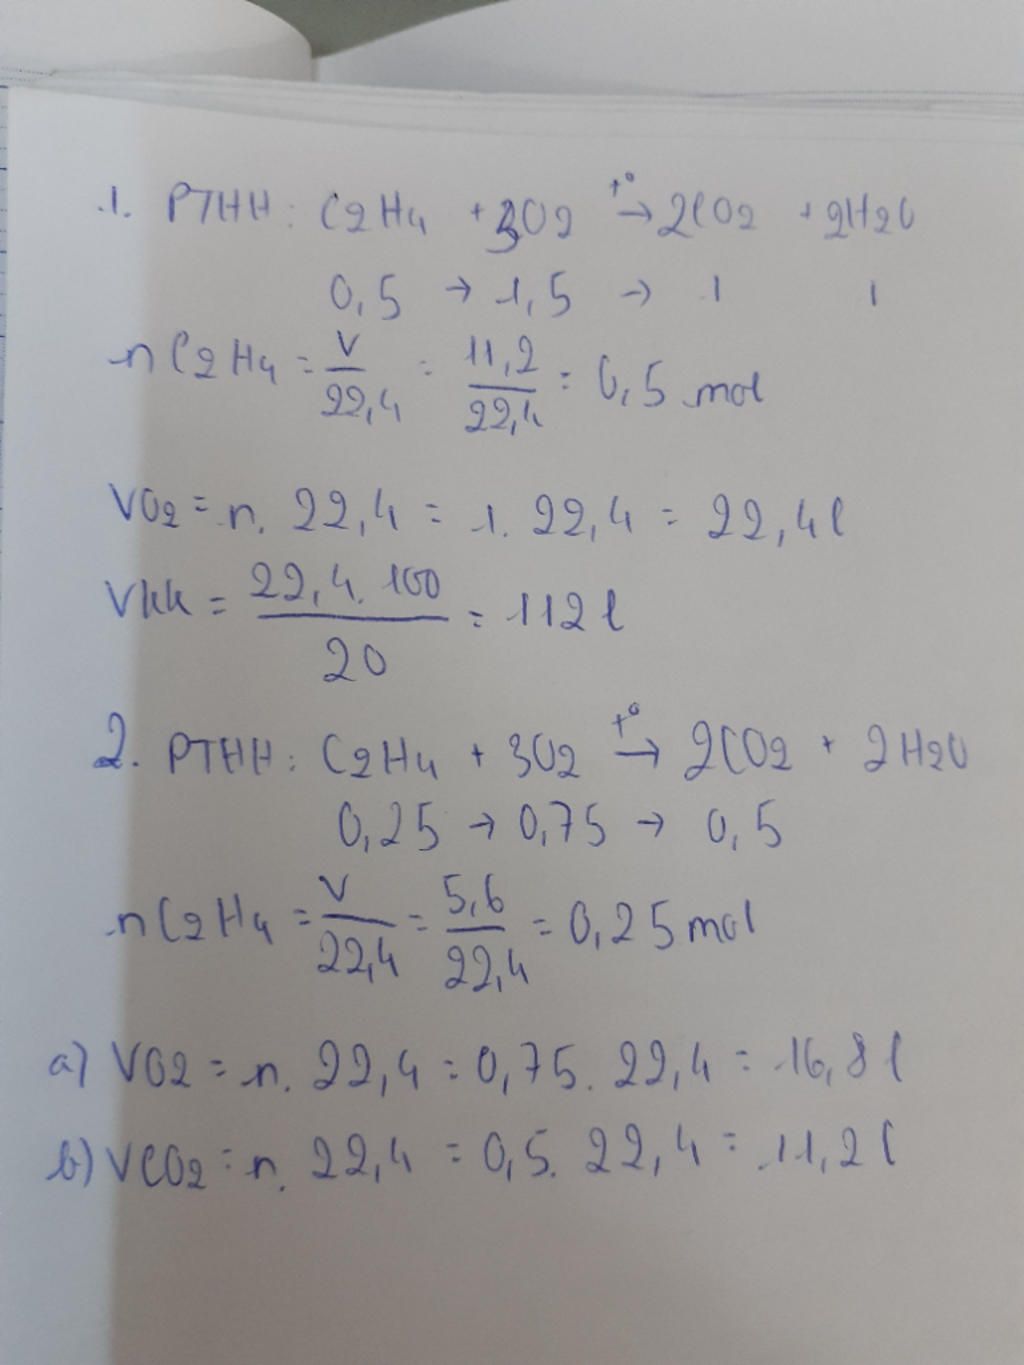 1. PTHH: C2H4 + 3O2 t°→ 2CO2 + 2H2O
0,5 → 1,5 → 1 1
nC2H4 = V/22,4 = 11,2/22,4 = 0,5 mol
VO2 = n. 22,4 = 1. 22,4 = 22,4l
Vkk = 22,4. 100/20 = 112 l
2. PTHH: C2H4 + 3O2 t°→ 2CO2 + 2H2O
0,25 → 0,75 → 0,5
nC2H4 = V/22,4 = 5,6/22,4 = 0,25 mol
a) VO2 = n. 22,4 = 0,75. 22,4 = 16,8 l
b) VCO2 = n. 22,4 = 0,5. 22,4 = 11,2 l